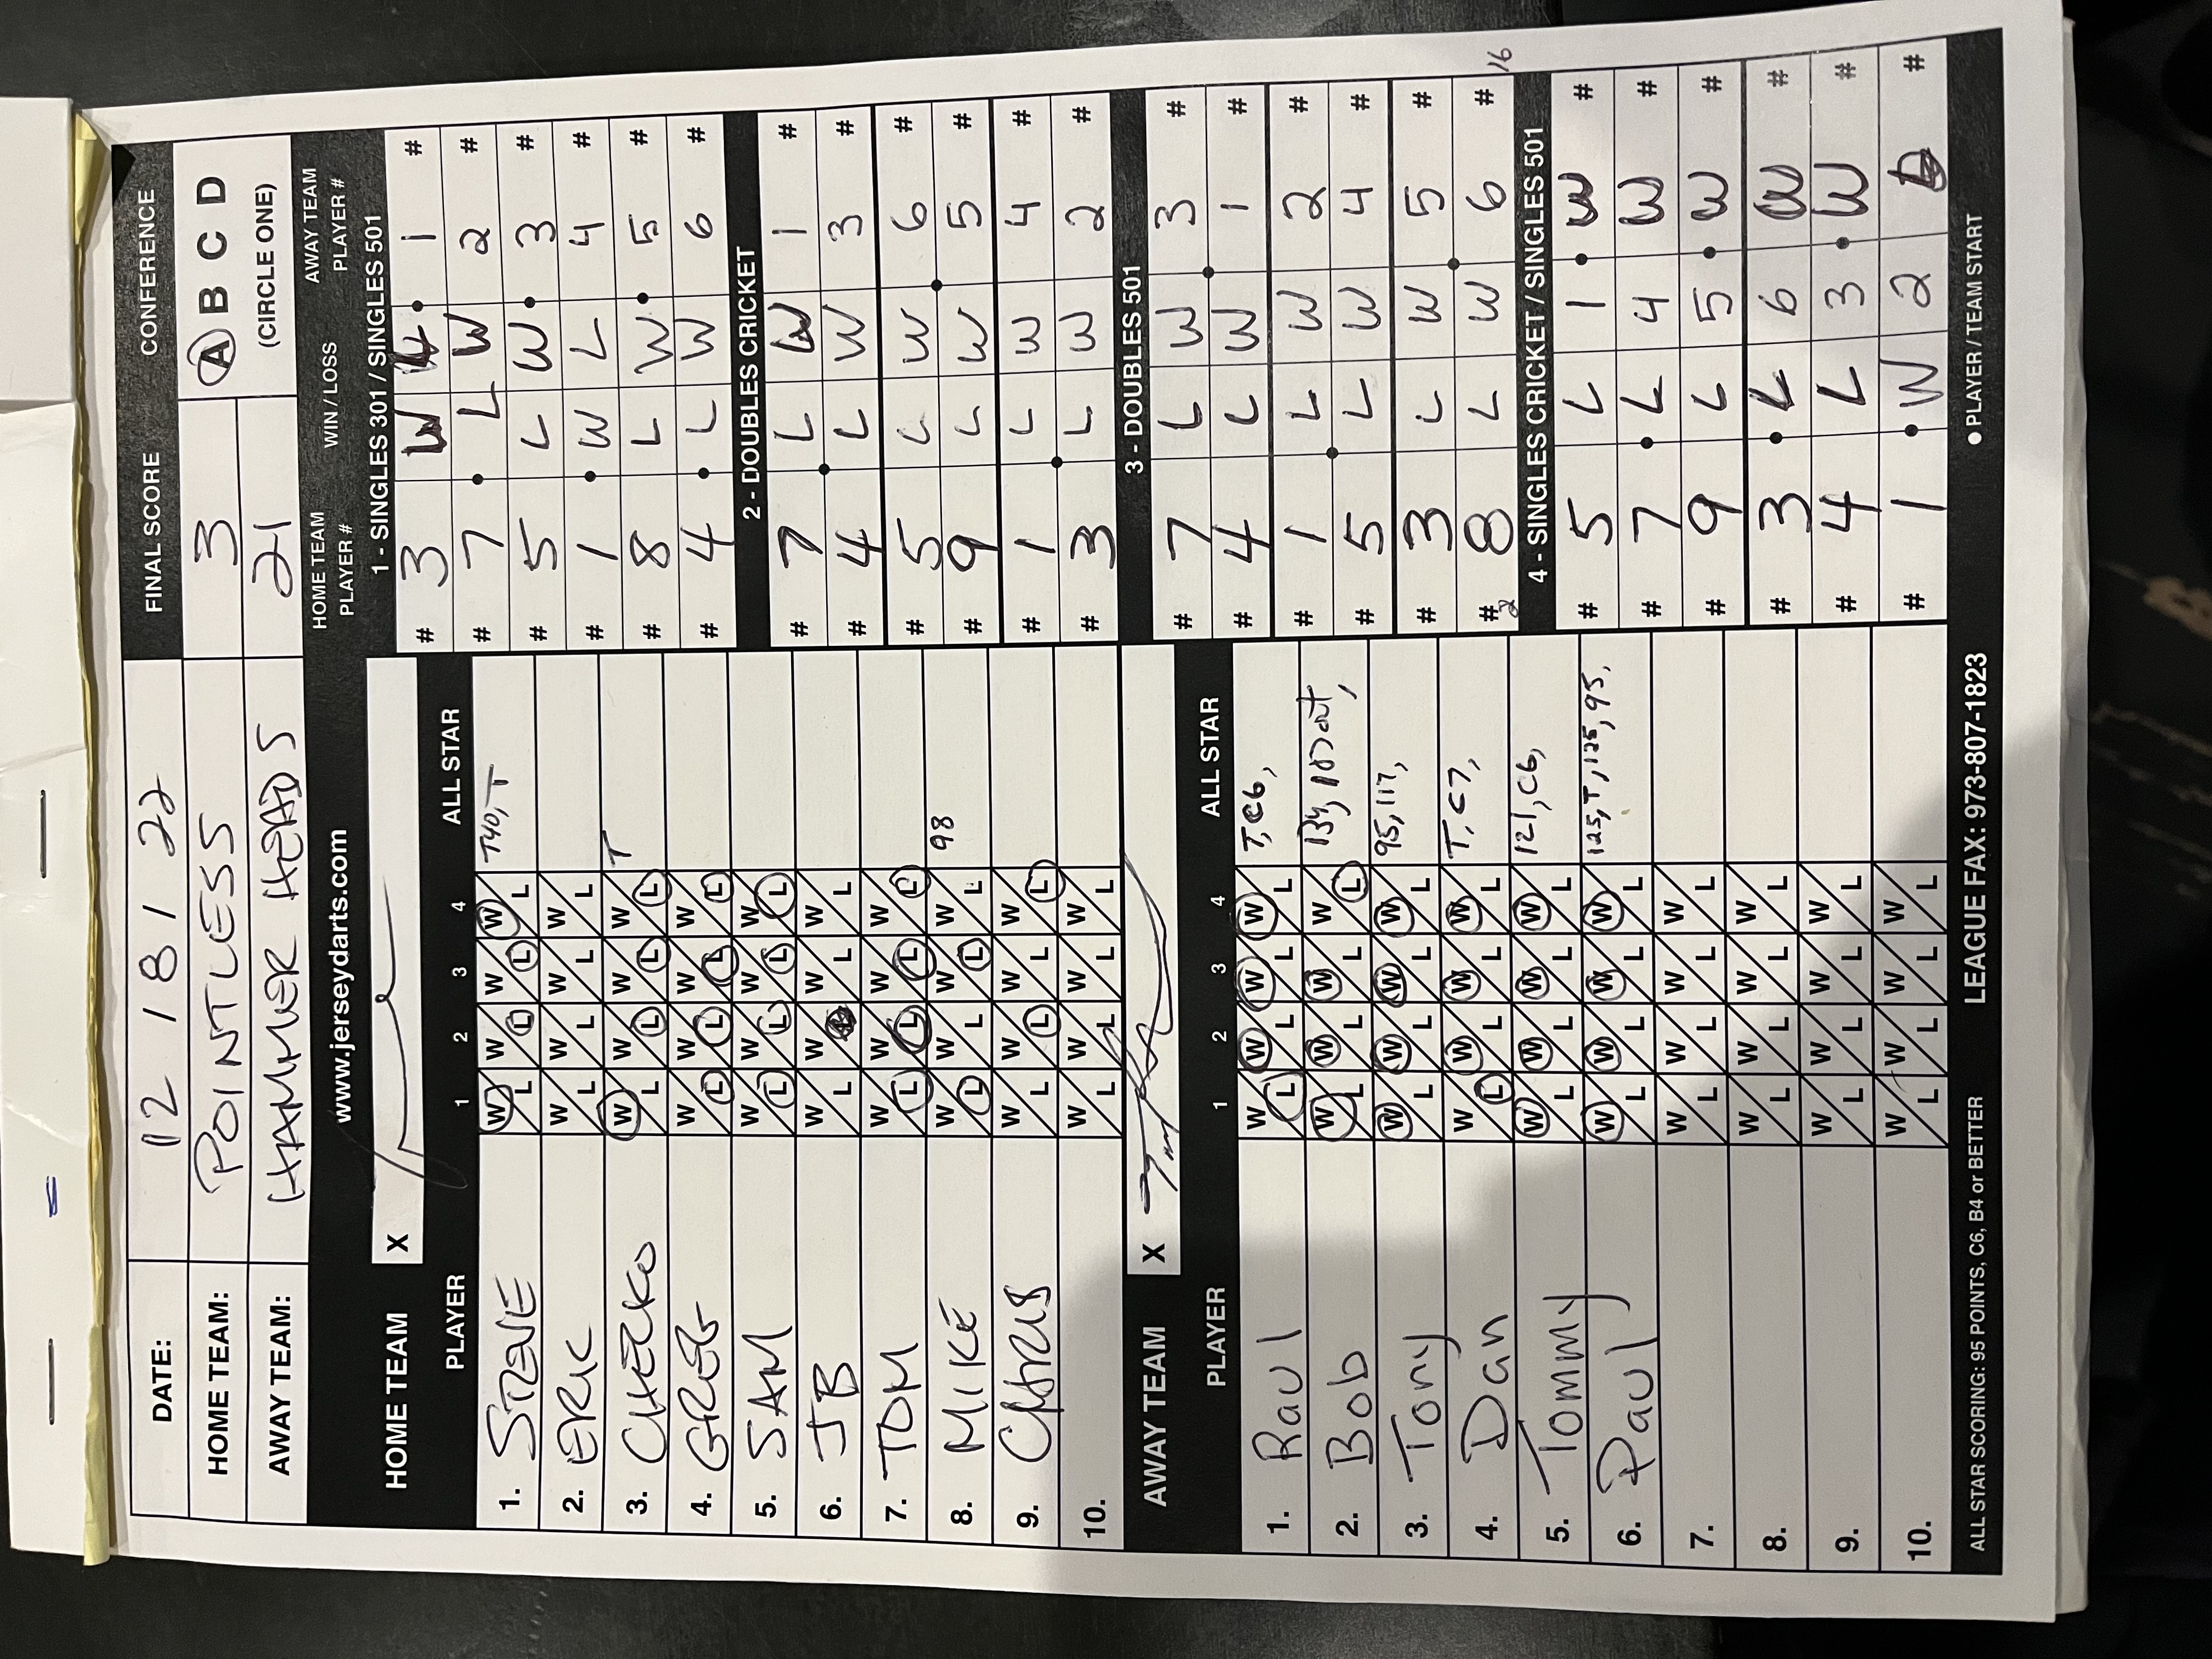 DATE: 12 / 8 / 22 FINAL SCORE CONFERENCE
HOME TEAM: POINTLESS 3 A B C D
AWAY TEAM: HAMMER HEADS 21 (CIRCLE ONE)
www.jerseydarts.com
HOME TEAM X
PLAYER 1 2 3 4 ALL STAR
1. STEVE W L W L W L W L T40, T
2. ERIC W L W L W L W L
3. CHECKO W L W L W L W L T
4. GREG W L W L W L W L
5. SAM W L W L W L W L
6. JB W L W W L W L
7. TOM W L W L W L W L
8. MIKE W L W L W L W L 98
9. CHRIS W L W L W L W L
10. W L W L W L W L
AWAY TEAM X
PLAYER 1 2 3 4 ALL STAR
1. Raul W L W L W L W L T, C6,
2. Bob W L W L W L W L 134, 107 out,
3. Tony W L W L W L W L 95, 117,
4. Dan W L W L W L W L T, C7,
5. Tommy W L W L W L W L 121, C6,
6. Paul W L W L W L W L 125, T, 125, 95,
7. W L W L W L W L
8. W L W L W L W L
9. W L W L W L W L
10. W L W L W L W L
ALL STAR SCORING: 95 POINTS, C6, B4 or BETTER LEAGUE FAX: 973-807-1823
HOME TEAM PLAYER # WIN / LOSS AWAY TEAM PLAYER #
1 - SINGLES 301 / SINGLES 501
# 3 W L 1 #
# 7 L W 2 #
# 5 L W 3 #
# 1 W L 4 #
# 8 L W 5 #
# 4 L W 6 #
2 - DOUBLES CRICKET
# 7 L W 1 #
# 4 L W 3 #
# 5 L W 6 #
# 9 L W 5 #
# 1 L W 4 #
# 3 L W 2 #
3 - DOUBLES 501
# 7 L W 3 #
# 4 L W 1 #
# 1 L W 2 #
# 5 L W 4 #
# 3 L W 5 #
# 8 L W 6 #
2 16
4 - SINGLES CRICKET / SINGLES 501
# 5 L 1 W #
# 7 L 4 W #
# 9 L 5 W #
# 3 L 6 W #
# 4 L 3 W #
# 1 W 2 L #
● PLAYER / TEAM START